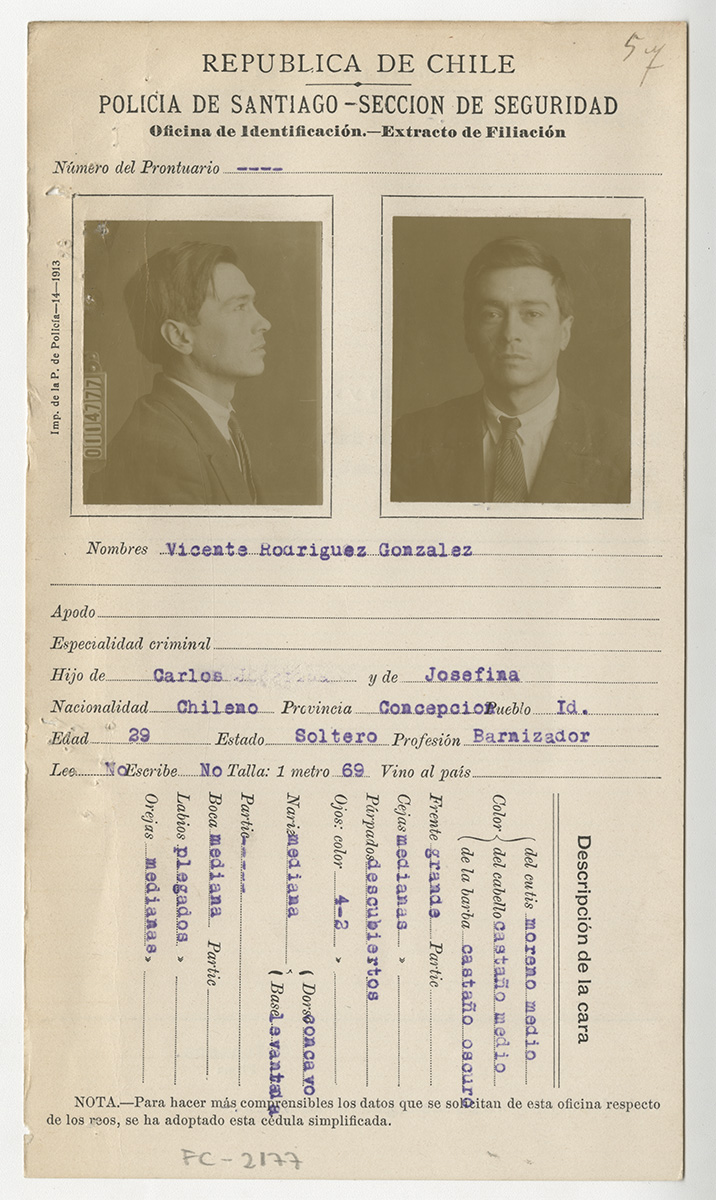 57
REPUBLICA DE CHILE
POLICIA DE SANTIAGO-SECCION DE SEGURIDAD
Oficina de Identificación.—Extracto de Filiación
Número del Prontuario ----
Imp. de la P. de Policía—14—1913
011477
Nombres Vicente Rodriguez Gonzalez
Apodo
Especialidad criminal
Hijo de Carlos y de Josefina
Nacionalidad Chileno Provincia Concepcion Pueblo Id.
Edad 29 Estado Soltero Profesión Barnizador
Lee No Escribe No Talla: 1 metro 69 Vino al país
Descripción de la cara
Color { del cutis moreno medio
del cabello castaño medio
de la barba castaño oscuro
Frente grande Partic
Cejas medianas »
Párpados descubiertos
Ojos: color 4-2 »
Nariz mediana { Dorso concavo
Base levantada
Partic ----
Boca mediana Partic
Labios plegados »
Orejas medianas »
NOTA.—Para hacer más comprensibles los datos que se solicitan de esta oficina respecto
de los reos, se ha adoptado esta cédula simplificada.
FC-2177